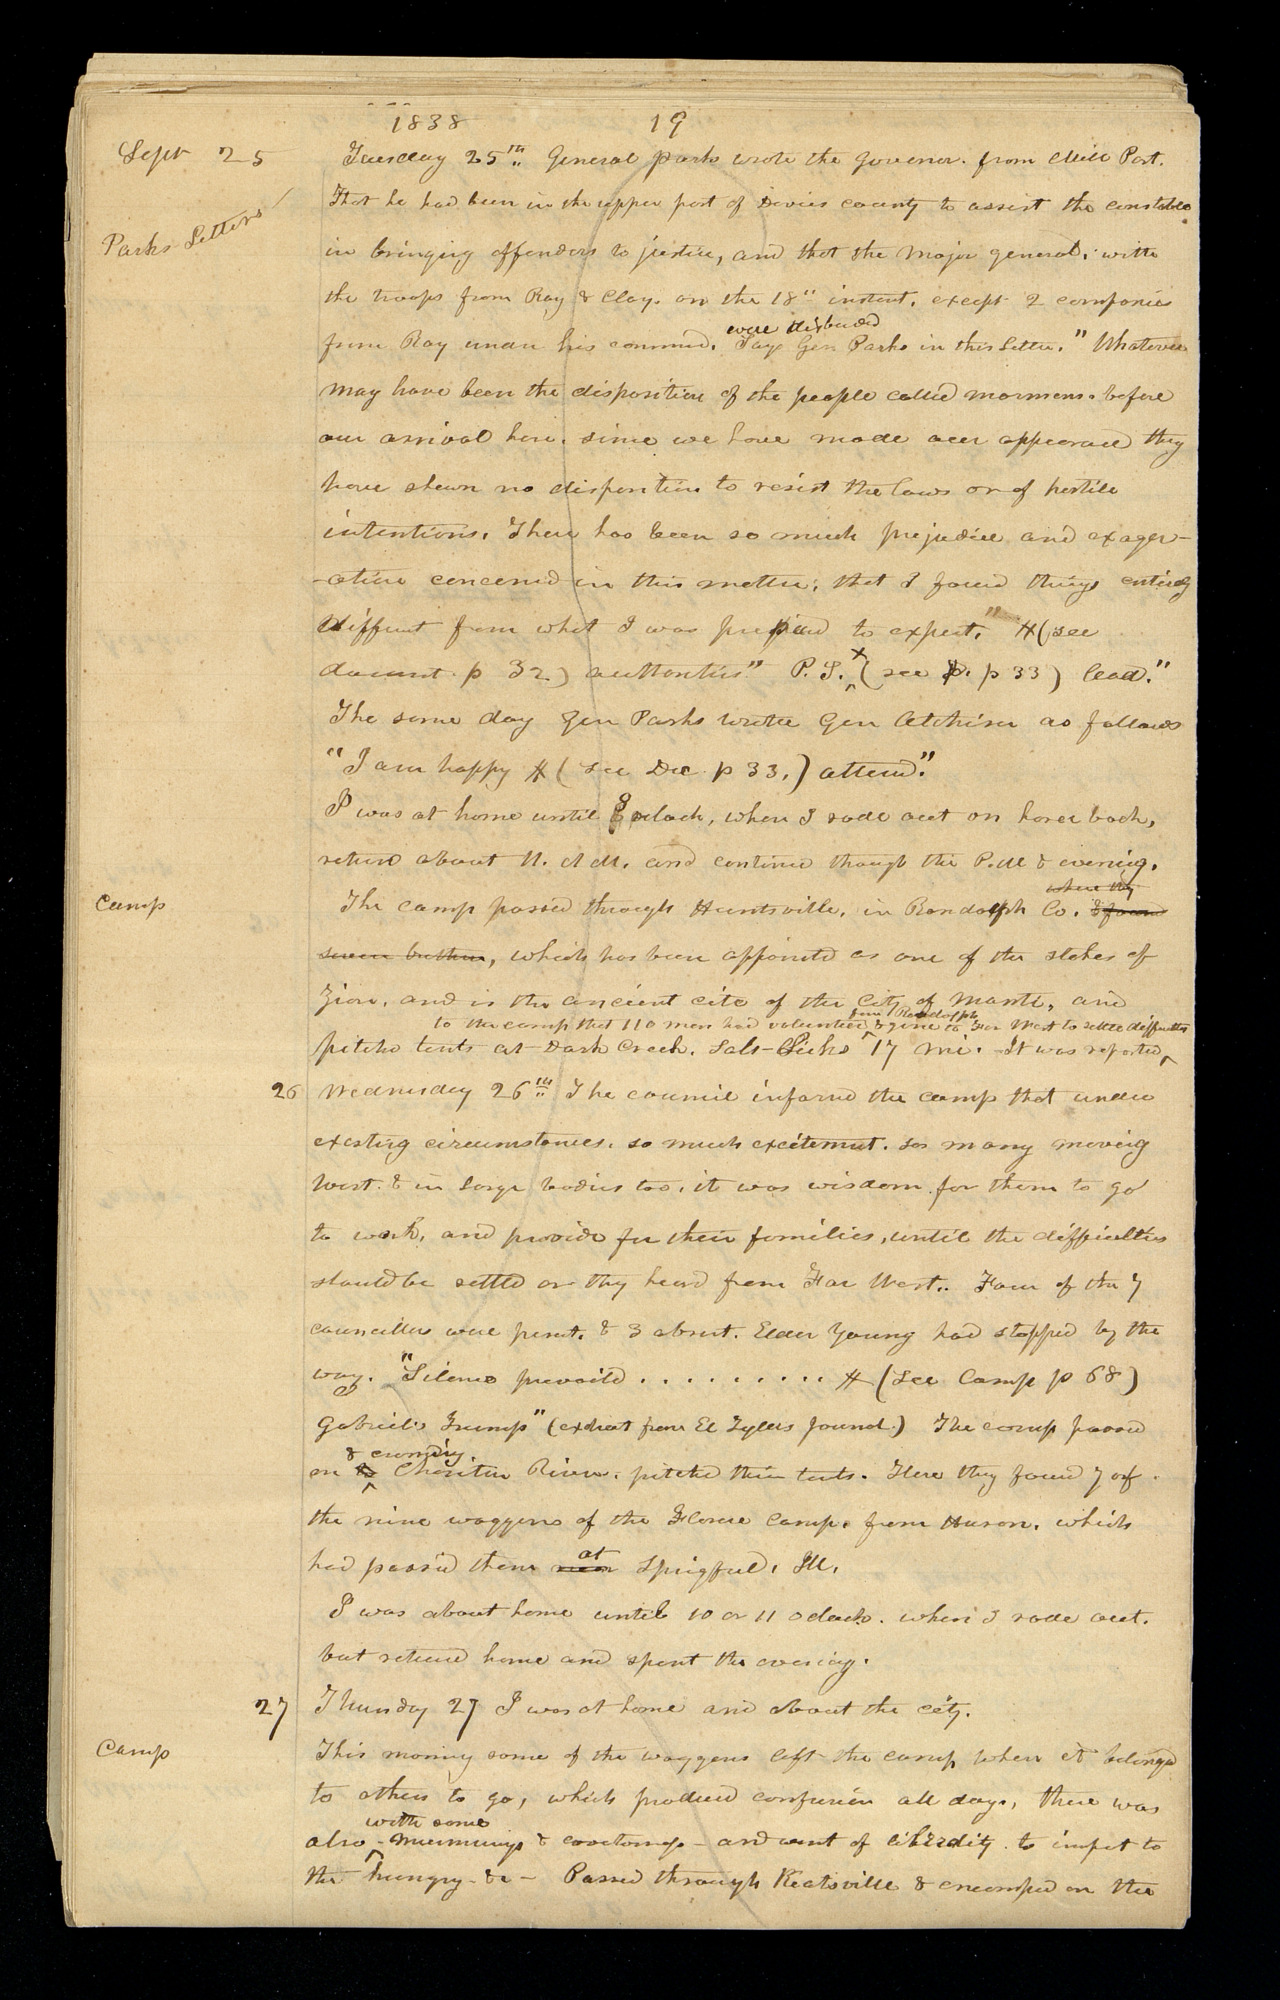 1838 19
Sept 25 Tuesday 25th. General parks wrote the governor. from Mill Port.
That he had been in the upper part of Davies county to assist the constable
Parks Letters
in bringing offenders to justice, and that the major general, with
the troops from Ray & Clay. on the 18" instant. except 2 companies
were disbanded
from Ray under his command. Says Gen Parks in this Letter. "Whatever
may have been the disposition of the people called mormons. before
our arrival here. since we have made our appearance they
have shewn no disposition to resist the laws or of hostile
intentions. There has been so much prejudice and exager-
-ation concerned in this matter; that I found things entirely
different from what I was prepared to expect." H (see
document. p 32) authorities" P.S. x (see D. p 33) lead."
The same day Gen Parks wrote Gen Atchison as follows
"I am happy H (see Doc p 33.) attend."
I was at home until 8 oclock, when I rode out on horse back,
returned about 11. A M. and continued though the P.M & evening.
where they
Camp The camp passed through Huntsville. in Randolph Co. & found
seven brethren, which has been appointed as one of the stakes of
Zion. and is the ancient cite of the City of Manti, and
from Randolph
to the camp that 110 men had volunteered & gone to Far West to settle difficulties
pitchd tents at Dark Creek. Salt-Licks 17 mi. It was reported
26 Wednesday 26th. The council informd the camp that under
existing circumstances. so much excitement. so many moving
West. & in large bodies too, it was wisdom for them to go
to work, and provide for their families, until the difficulties
should be settled or they heard from Far West. Four of the 7
councillors were present. & 3 absent. Elder Young had stopped by the
way. "Silence prevaild . . . . . . . . . H (see Camp p 68)
Gabriel's Trump" (extract from El Tylers journal.) The camp passed
& crossing
on to Chariton River. pitched their tents. Here they found 7 of
the nine waggons of the Flower Camp. from Huron. which
at
had passed them near Springfield. Ill.
I was about home until 10 or 11 oclock. when I rode out.
but returned home and spent the evening.
27 Thursday 27 I was at home and about the city.
Camp This morning some of the waggons left the camp when it belonged
to others to go, which produced confusion all day, there was
with some
also - murmurings & covetousness - and want of liberality to impart to
the hungry - &c - Passed through Keatsville & encamped on the